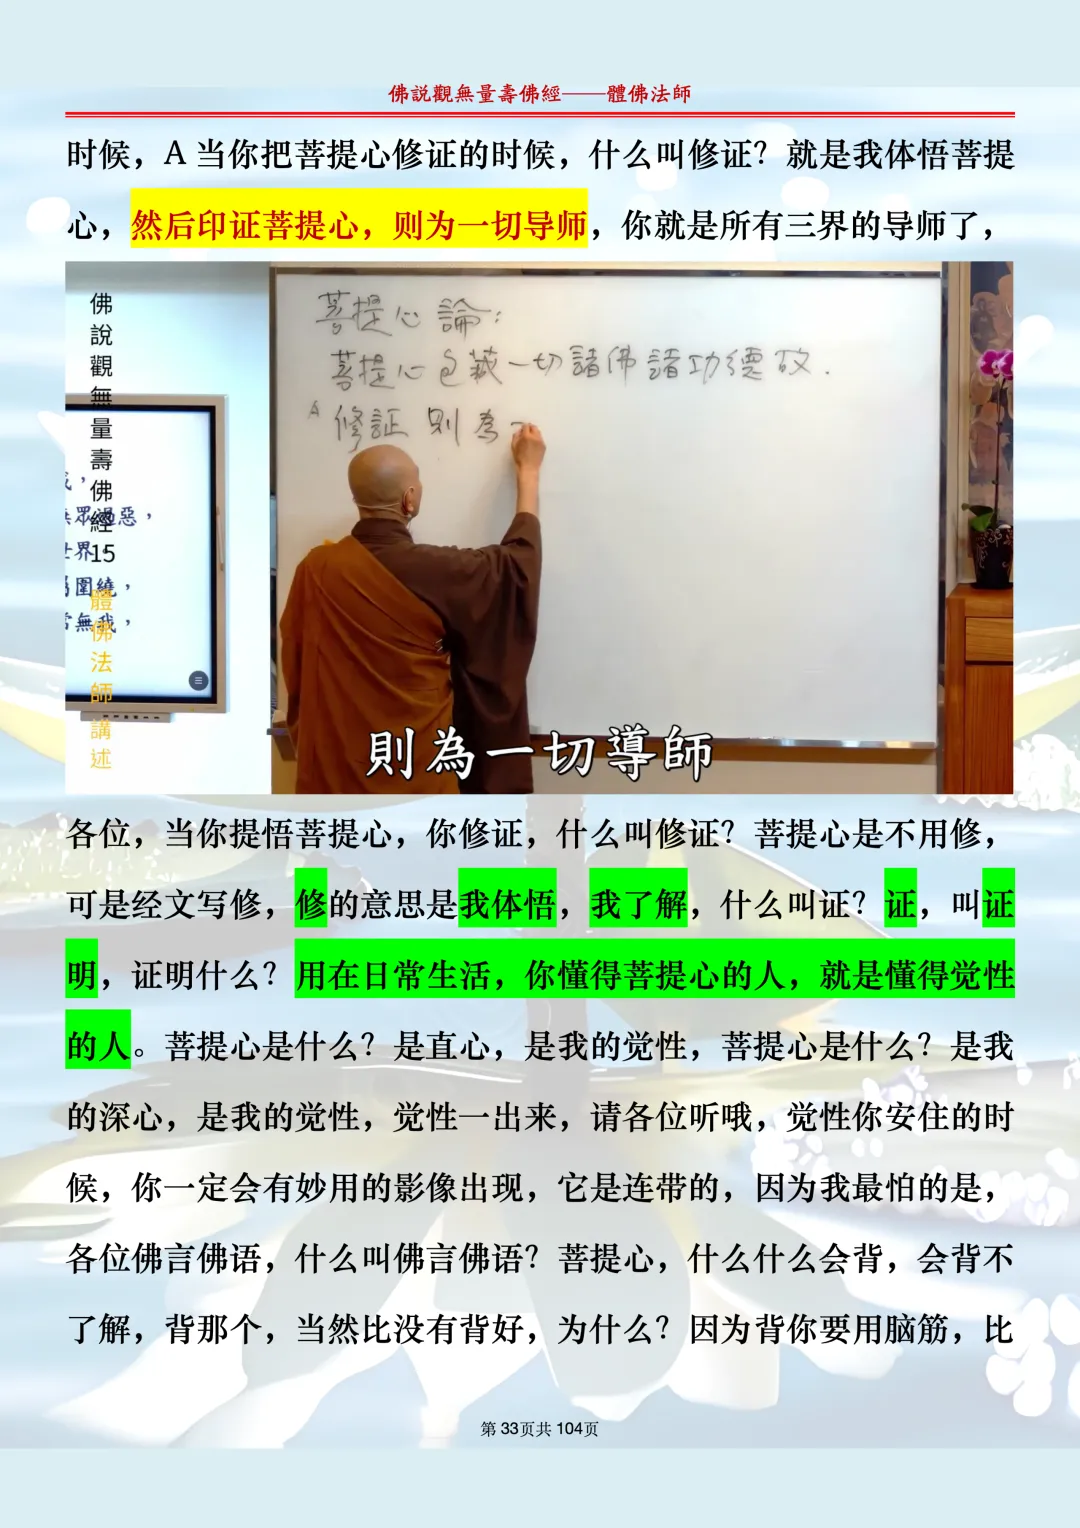 佛説觀無量壽佛經——體佛法師
时候，A 当你把菩提心修证的时候，什么叫修证？就是我体悟菩提
心，然后印证菩提心，则为一切导师，你就是所有三界的导师了，
佛說觀無量壽佛經15 體佛法師講述
菩提心論：
菩提心包裁一切諸佛諸功德故.
A 修証 則為一
眾過惡，
世界
圍繞，
常無我，
則為一切導師
各位，当你提悟菩提心，你修证，什么叫修证？菩提心是不用修，
可是经文写修，修的意思是我体悟，我了解，什么叫证？证，叫证
明，证明什么？用在日常生活，你懂得菩提心的人，就是懂得觉性
的人。菩提心是什么？是直心，是我的觉性，菩提心是什么？是我
的深心，是我的觉性，觉性一出来，请各位听哦，觉性你安住的时
候，你一定会有妙用的影像出现，它是连带的，因为我最怕的是，
各位佛言佛语，什么叫佛言佛语？菩提心，什么什么会背，会背不
了解，背那个，当然比没有背好，为什么？因为背你要用脑筋，比
第 33页共 104页